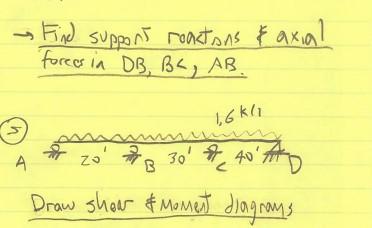 → Find support reactions & axial
forces in DB, BC, AB.
1,6 k/1
5
A 20' B 30' C 40' D
Draw shear & Moment diagrams